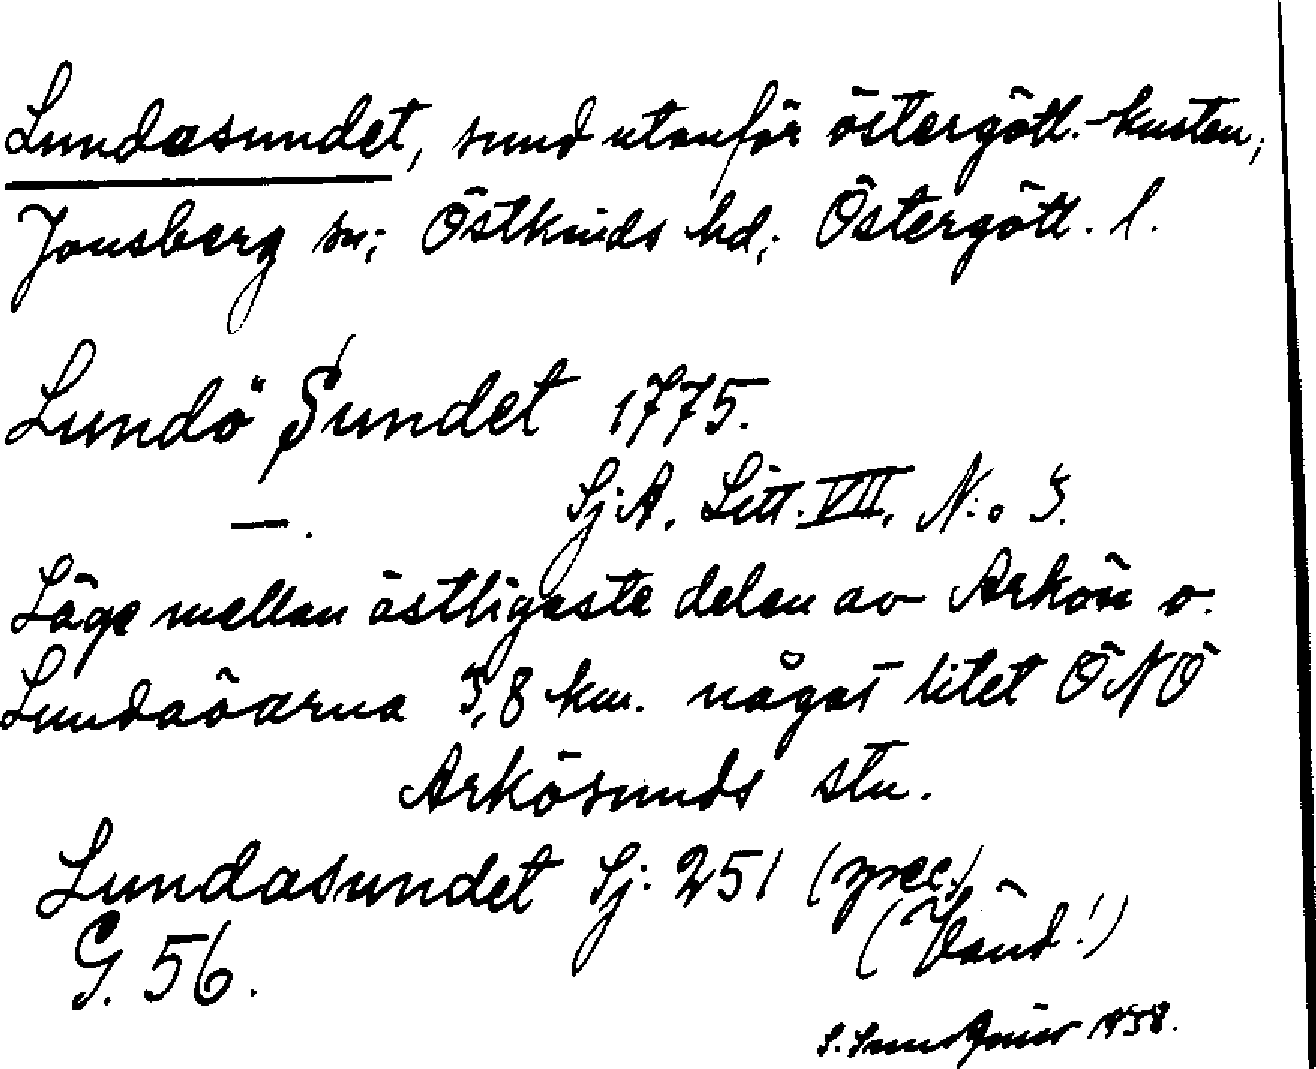 Lundasundet, sund utanför östergötl.-kusten,
Jonsberg sn; Östkinds hd; Östergötl. l.
Lundö Sundet 1775.
—. Sj.A. Litt. VII, N:o 3.
Läge mellan östligaste delen av Arkön o.
Lundaöarna 3,8 km. något litet ÖNÖ
Arkösunds stn.
Lundasundet Sj. 251 (spec.)
G. 56. (Vänd!)
S. 1938.